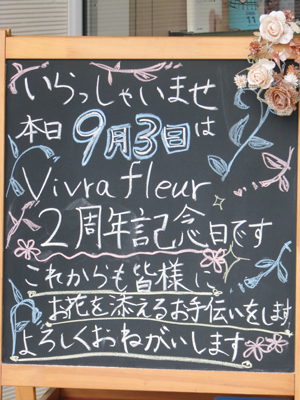 いらっしゃいませ
本日9月3日は
Vivra fleur
2周年記念日です
これからも皆様に
お花を添えるお手伝いをします
よろしくおねがいします